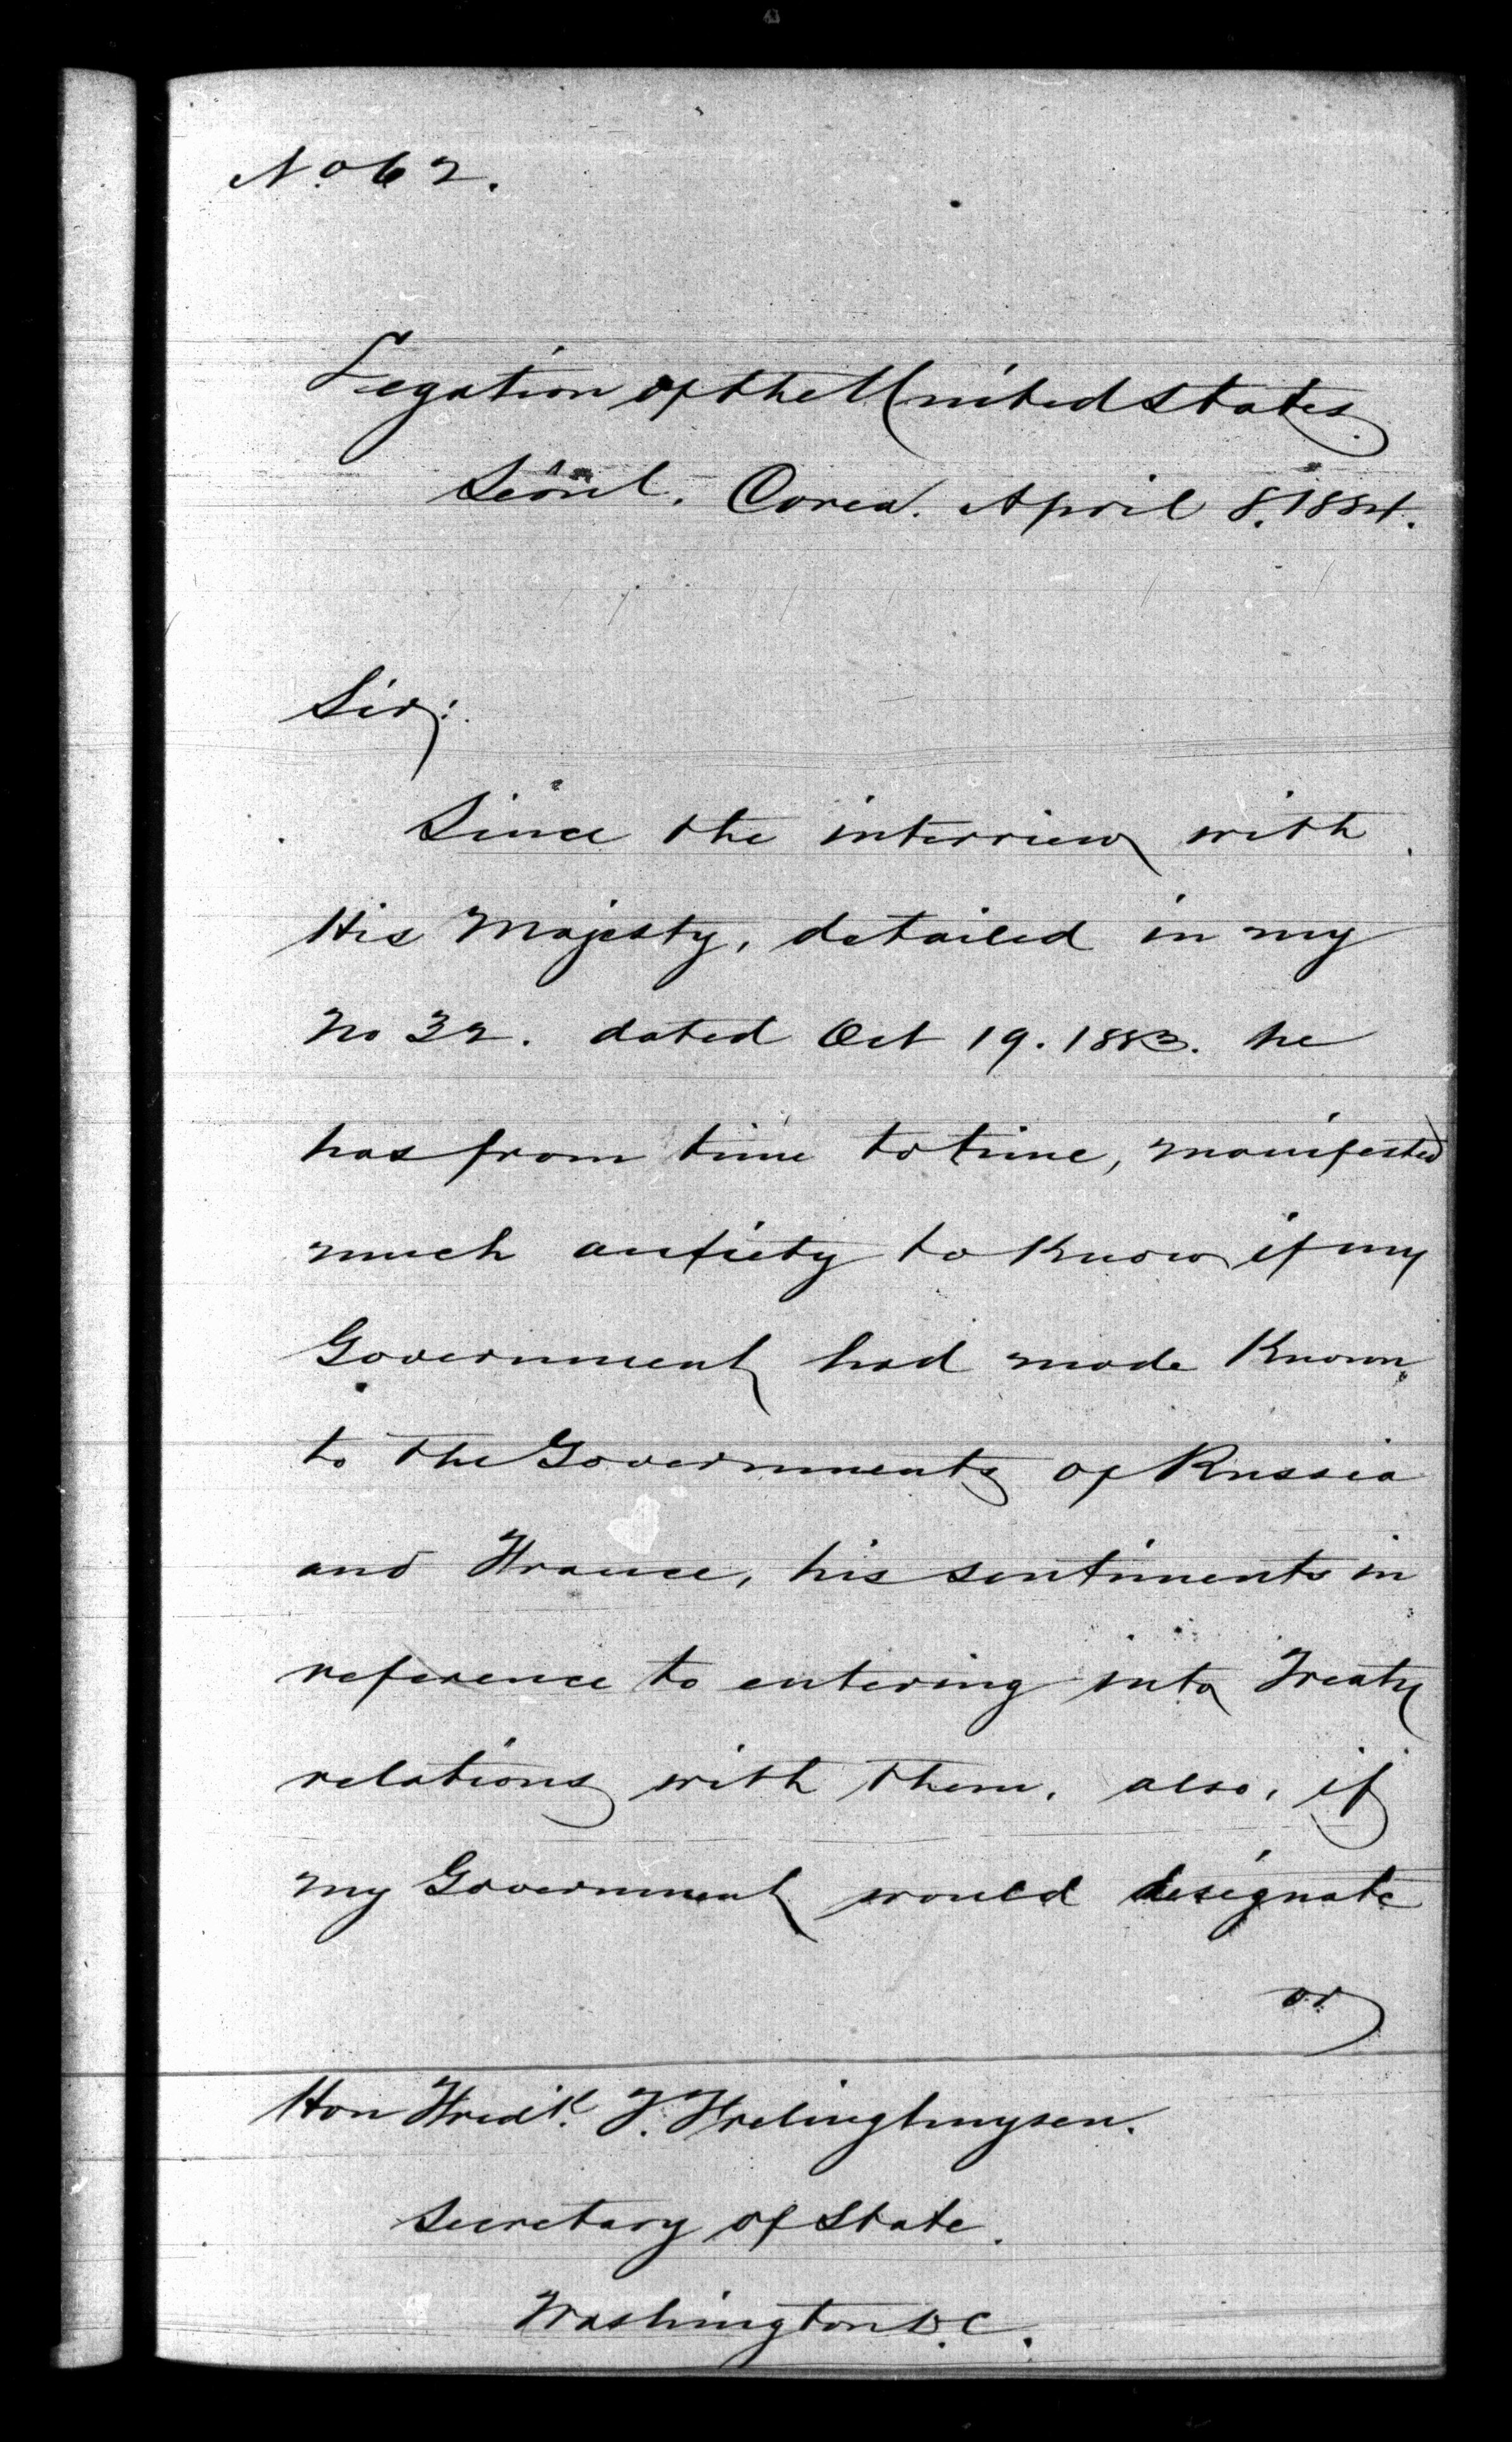 No. 62.
Legation of the United States.
Seoul. Corea. April 8. 1884.
Sir:
Since the interview with
His Majesty, detailed in my
No 32. dated Oct 19. 1883. he
has from time to time, manifested
much anxiety to know if my
Government had made known
to the Governments of Russia
and France, his sentiments in
reference to entering into Treaty
relations with them. also, if
my Government would designate
or
Hon Fredk. T. Frelinghuysen.
Secretary of State.
Washington D.C.